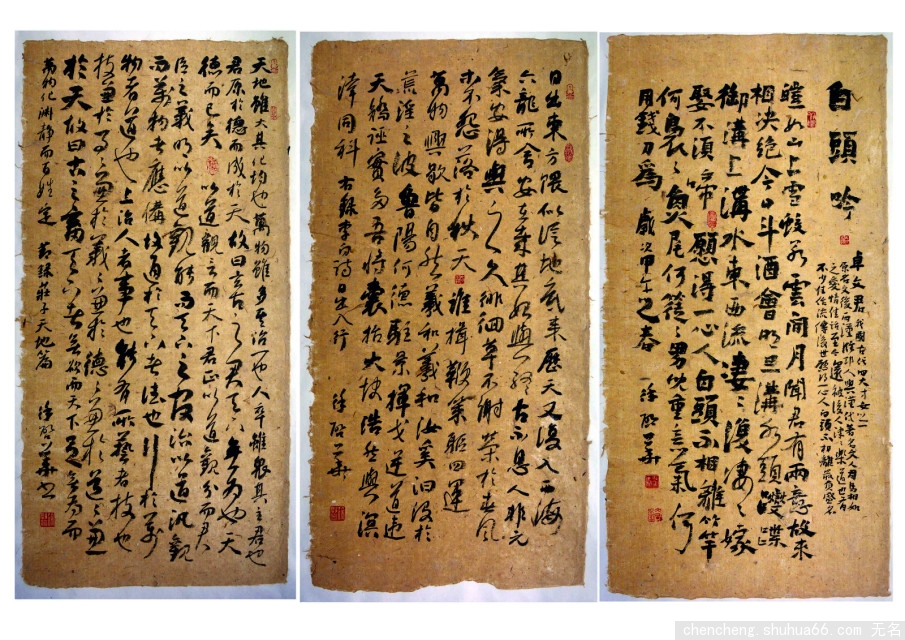 白頭吟
卓文君 我國古代四大才女之一
皚如山上雪皎若雲間月聞君有兩意故來
相決絕今日斗酒會明旦溝水頭躞蹀
御溝上溝水東西流淒淒復淒淒嫁
娶不須啼願得一心人白頭不相離竹竿
何裊裊魚尾何簁簁男兒重意氣何
用錢刀為 歲次甲午之春 徐啟華
日出東方隈似從地底來歷天又復入西海
六龍所舍安在哉其始與終古不息人非元
氣安得與之久徘徊草不謝榮於春風
木不怨落於秋天誰揮鞭策驅四運
萬物興歇皆自然羲和羲和汝奚汩沒於
荒淫之波魯陽何德駐景揮戈逆道違
天矯誣實多吾將囊括大塊浩然與溟
涬同科 右錄李白詩日出入行 徐啟華
天地雖大其化均也萬物雖多其治一也人卒雖眾其主君也
君原於德而成於天故曰玄古之君天下無為也天
德而已矣 以道觀言而天下君正以道觀分而君
臣之義明以道觀能而天下之官治以道汎觀
而萬物之應備故通於天下者德也行於萬
物者道也上治人者事也能有所藝者技也
技兼於事事兼於義義兼於德德兼於道道兼
於天故曰古之畜天下者無欲而天下足無為而
萬物化淵靜而百姓定 節錄莊子天地篇 徐啟華書
chencheng.shuhua66.com 无名